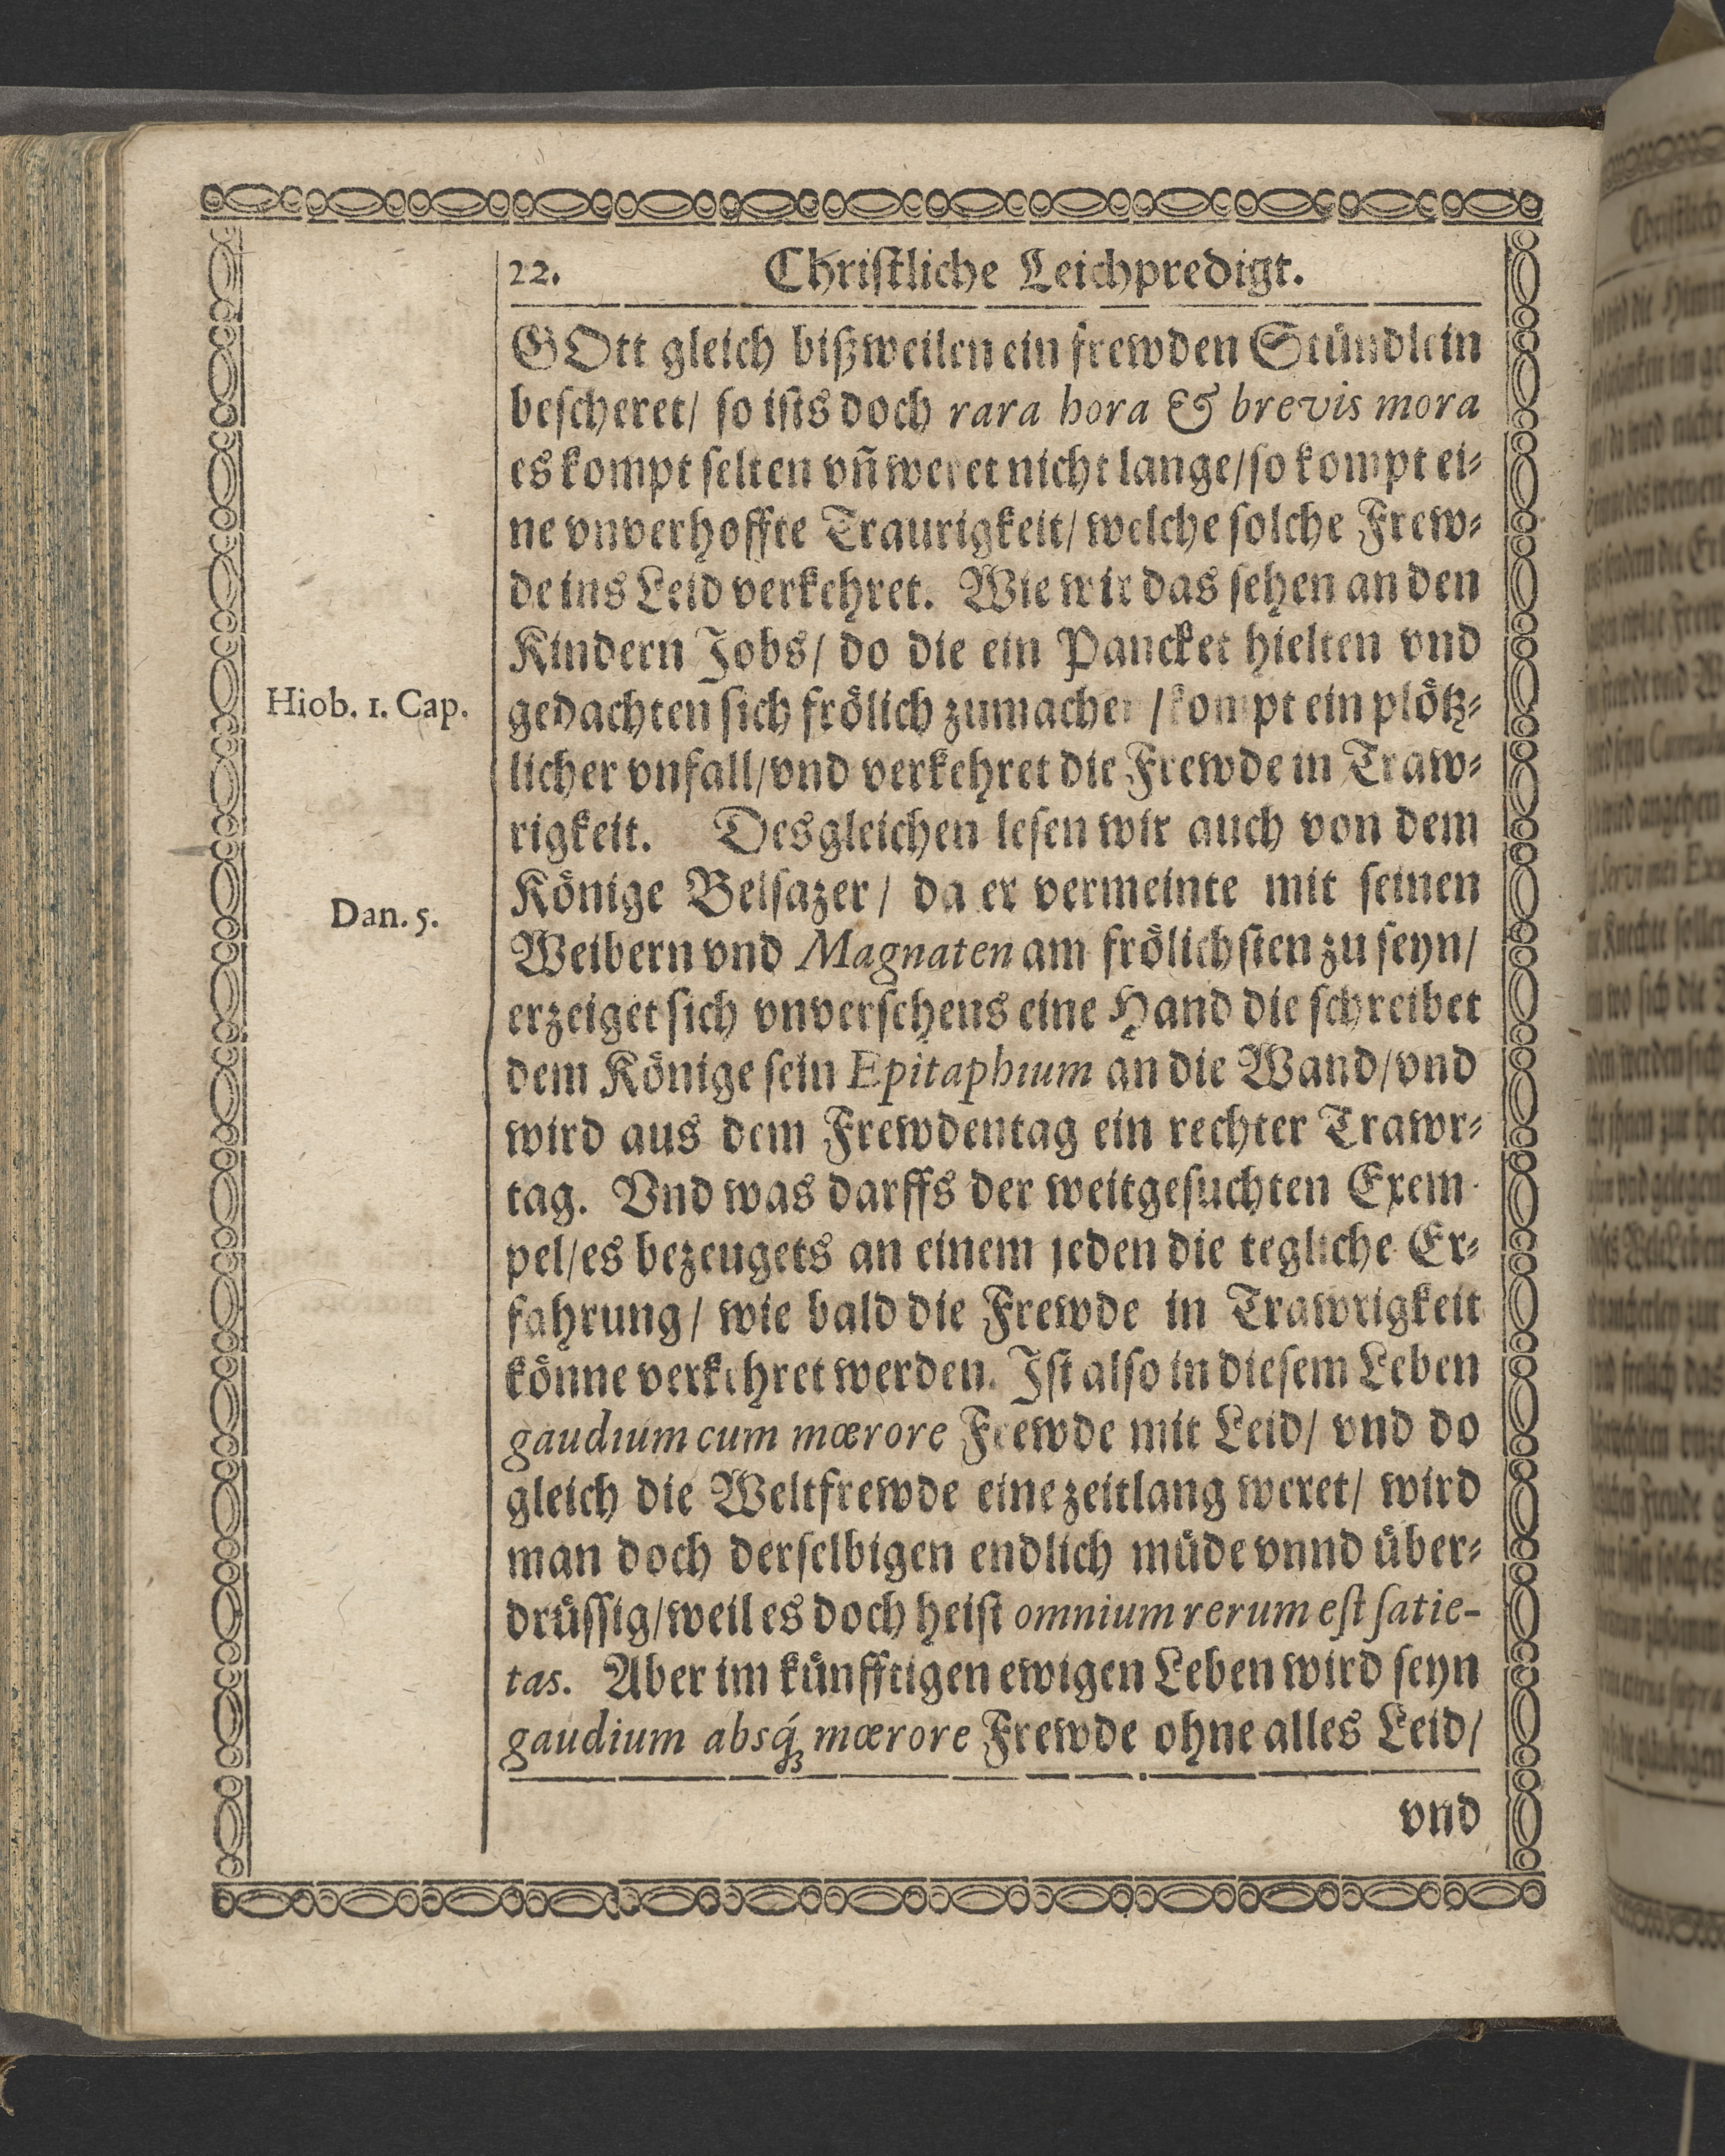 22. Christliche Leichpredigt.
GOtt gleich bißweilen ein frewden Stündlein
bescheret/ so ists doch rara hora & brevis mora
es kompt selten vñ weret nicht lange/so kompt ei-
ne vnverhoffte Traurigkeit/ welche solche Frew-
de ins Leid verkehret. Wie wir das sehen an den
Kindern Jobs/ do die ein Pancket hielten vnd
Hiob. 1. Cap.
gedachten sich frölich zumachen /kompt ein plötz-
licher vnfall/vnd verkehret die Frewde in Traw-
rigkeit. Desgleichen lesen wir auch von dem
Könige Belsazer/ da er vermeinte mit seinen
Dan. 5.
Weibern vnd Magnaten am frölichsten zu seyn/
erzeiget sich vnversehens eine Hand die schreibet
dem Könige sein Epitaphium an die Wand/vnd
wird aus dem Frewdentag ein rechter Trawr-
tag. Vnd was darffs der weitgesuchten Exem-
pel/es bezeugets an einem jeden die tegliche Er-
fahrung/ wie bald die Frewde in Trawrigkeit
könne verkehret werden. Ist also in diesem Leben
gaudium cum mœrore Frewde mit Leid/ vnd do
gleich die Weltfrewde eine zeitlang weret/ wird
man doch derselbigen endlich müde vnnd über-
drüssig/weil es doch heist omnium rerum est satie-
tas. Aber im künfftigen ewigen Leben wird seyn
gaudium absq́ꝫ mœrore Frewde ohne alles Leid/
vnd